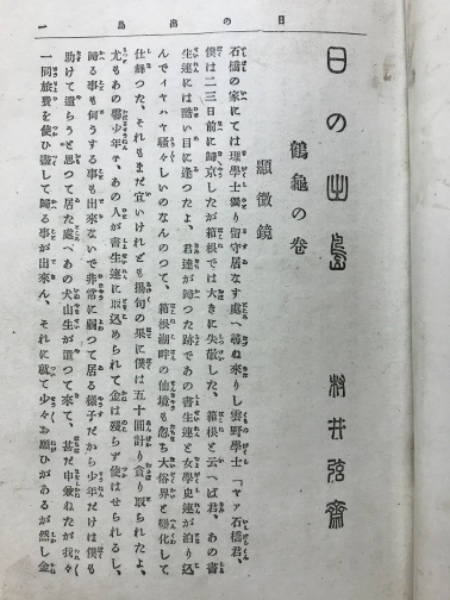 日の出島 一
日の出島 村井弦齋
鶴龜の卷
顯微鏡
石橋の家にては理學士獨り留守居なす處へ尋ね來りし雲野學士「ヤア石橋君、
僕は二三日前に歸京したが箱根では大きに失敬した、箱根と云へば君、あの書
生連には酷い目に逢つたよ、君達が歸つた跡であの書生連と女學史連が泊り込
んでイヤハヤ騷々しいのなんのつて、箱根湖畔の仙境も忽ち大俗界と變化して
仕舞つた、それもまだ宜いけれども揚句の果に僕は五十圓計り貪り取られたよ、
尤もあの馨少年ネ、あの人が書生連に取込められて金は殘らず使はせられるし、
歸る事も何うする事も出來ないで非常に弱つて居る樣子だから少年だけは僕も
助けて遣らうと思つて居た處へあの犬山生が遣つて來て、甚だ申兼ねたが我々
一同旅費を使ひ盡して歸る事が出來ん、それに就て少々お願ひがあるが然し金